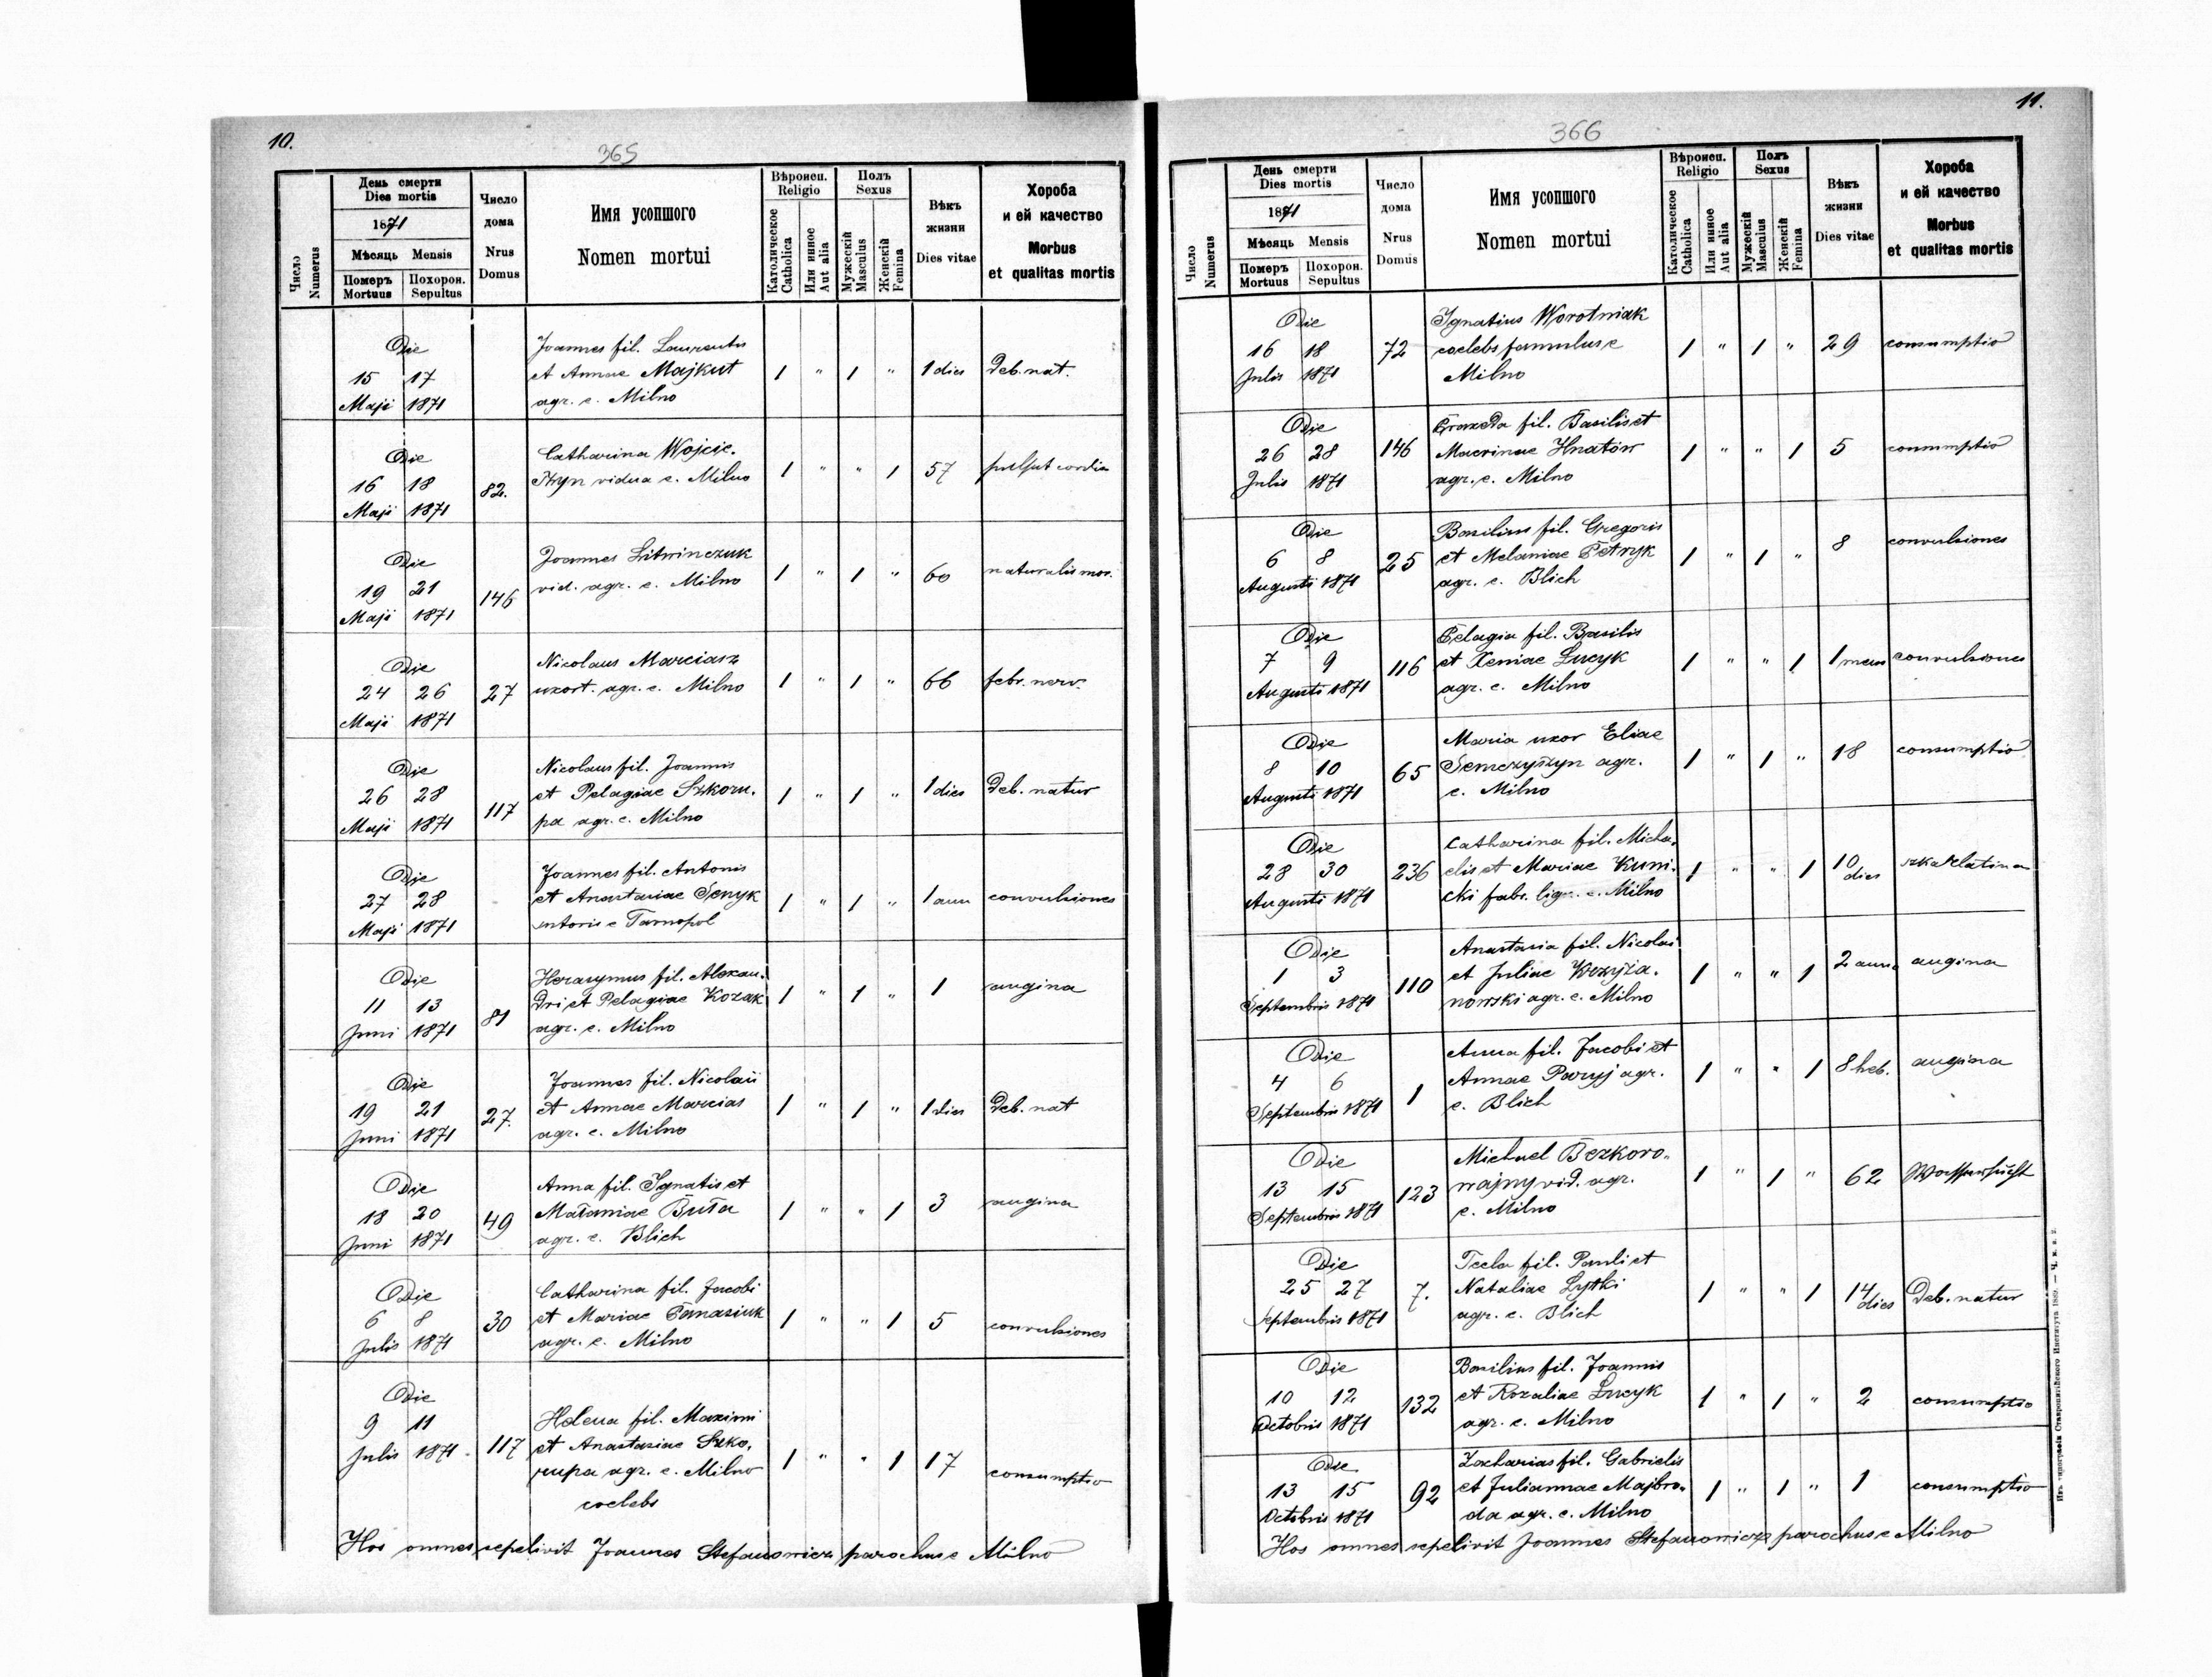 10.
365
Число
Numerus
День смерти
Dies mortis
1871
Мѣсяць Mensis
Померъ
Mortuus
Похорон.
Sepultus
Число
дома
Nrus
Domus
Имя усопшого
Nomen mortui
Вѣроисп.
Religio
Католическое
Catholica
Или инное
Aut alia
Полъ
Sexus
Мужескій
Masculus
Женскій
Femina
Вѣкъ
жизни
Dies vitae
Хороба
и ей качество
Morbus
et qualitas mortis
Die
15 17
Maji 1871
Joannes fil. Laurentii
et Annae Majkut
agr. e. Milno
1 " 1 " 1 dies Deb. nat.
Die
16 18
Maji 1871
82.
Catharina Wojcie.
szyn vidua e. Milno
1 " " 1 57 pulsat cordis
Die
19 21
Maji 1871
146
Joannes Litwinczuk
vid. agr. e. Milno
1 " 1 " 60 naturalis mor.
Die
24 26
Maji 1871
27
Nicolaus Marciasz
uxort. agr. e. Milno
1 " 1 " 66 febr. nerv.
Die
26 28
Maji 1871
117
Nicolaus fil. Joannis
et Pelagiae Szkoru.
pa agr. e. Milno
1 " 1 " 1 dies Deb. natur
Die
27 28
Maji 1871
Joannes fil. Antonis
et Anastasiae Senyk
sutoris e Tarnopol
1 " 1 " 1 ann convulsiones
Die
11 13
Juni 1871
81
Herasymus fil. Alexan.
dri et Pelagiae Kozak
agr. e. Milno
1 " 1 " 1 angina
Die
19 21
Juni 1871
27.
Joannes fil. Nicolaii
et Annae Marcias
agr. e. Milno
1 " 1 " 1 dies Deb. nat
Die
18 20
Juni 1871
49
Anna fil. Ignatis et
Małaniae Buła
agr. e. Blich
1 " " 1 3 angina
Die
6 8
Julis 1871
30
Catharina fil. Jacobi
et Mariae Panasiuk
agr. e. Milno
1 " " 1 5 convulsiones
Die
9 11
Julis 1871
117
Helena fil. Maximi
et Anastasiae Szko.
rupa agr. e. Milno
coelebs
1 " " 1 17 consumptio
Hos omnes sepelivit Joannes Stefanowicz parochus e Milno
11.
366
Число
Numerus
День смерти
Dies mortis
1871
Мѣсяць Mensis
Померъ
Mortuus
Похорон.
Sepultus
Число
дома
Nrus
Domus
Имя усопшого
Nomen mortui
Вѣроисп.
Religio
Католическое
Catholica
Или инное
Aut alia
Полъ
Sexus
Мужескій
Masculus
Женскій
Femina
Вѣкъ
жизни
Dies vitae
Хороба
и ей качество
Morbus
et qualitas mortis
Die
16 18
Julis 1871
72
Ignatius Worotniak
coelebs famulus e
Milno
1 " 1 " 29 consumptio
Die
26 28
Julis 1871
146
Paraxeda fil. Basilis et
Macrinae Hnatów
agr. e. Milno
1 " " 1 5 consumptio
Die
6 8
Augusti 1871
25
Basilius fil. Gregoris
et Melaniae Petryk
agr. e. Blich
1 " 1 " 8 convulsiones
Die
7 9
Augusti 1871
116
Pelagia fil. Basilis
et Xeniae Lucyk
agr. e. Milno
1 " " 1 1 mens convulsiones
Die
8 10
Augusti 1871
65
Maria uxor Eliae
Semczyszyn agr.
e. Milno
1 " 1 " 18 consumptio
Die
28 30
Augusti 1871
236
Catharina fil. Micha.
elis et Mariae Kuni.
cki fabr. lign. e. Milno
1 " " 1 10 dies szkarlatina
Die
1 3
Septembris 1871
110
Anastasia fil. Nicolai
et Juliae Krzyża.
nowski agr. e. Milno
1 " " 1 2 ann. angina
Die
4 6
Septembris 1871
1
Anna fil. Jacobi et
Annae Paryj agr.
e. Blich
1 " " 1 8 heb. angina
Die
13 15
Septembris 1871
123
Michael Bezkoro.
wajny vid. agr.
e. Milno
1 " 1 " 62 Wassersucht
Die
25 27
Septembris 1871
7.
Tecla fil. Pauli et
Nataliae Lytki
agr. e. Blich
1 " " 1 14 dies Deb. natur
Die
10 12
Octobris 1871
132
Basilius fil. Joannis
et Rozaliae Lucyk
agr. e. Milno
1 " 1 " 2 consumptio
Die
13 15
Octobris 1871
92
Zacharias fil. Gabrielis
et Juliannae Majbro.
da agr. e. Milno
1 " 1 " 1 consumptio
Hos omnes sepelivit Joannes Stefanowicz parochus e Milno
Изъ типографіи Ставропигійского Института 1889. — Ч. м. в. 2.